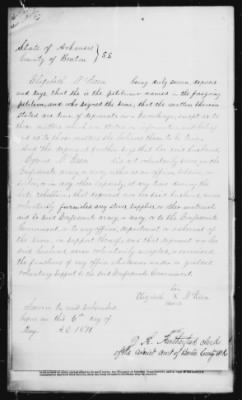 State of Arkansas }
County of Benton } SS
Elizabeth being duly sworn, deposes
and says that she is the petitioner named in the foregoing
petition, and who signed the same; that the matters therein
stated are true of deponents own knowledge, except as to
those matters which are stated on information and belief
and as to those matters she believes them to be true.
And this deponent further says that her said husband,
did not voluntarily serve in the
Confederate army or navy, either as an officer, soldier, or
sailor, or in any other capacity, at any time during the
late rebellion; that
voluntarily furnished any stores, supplies, or other material
aid to said Confederate army or navy, or to the Confederate
Government, or to any officer, department, or adherent of
the same, in support thereof; and that
said husband never voluntarily accepted or exercised
the functions of any office whatsoever under, or yielded
voluntary support to the said Confederate Government.
her
Elizabeth X
mark
Sworn to and subscribed
before me this 6th day of
May A.D. 1871
J. R. Rutherford Clerk
of the circuit court of Benton County